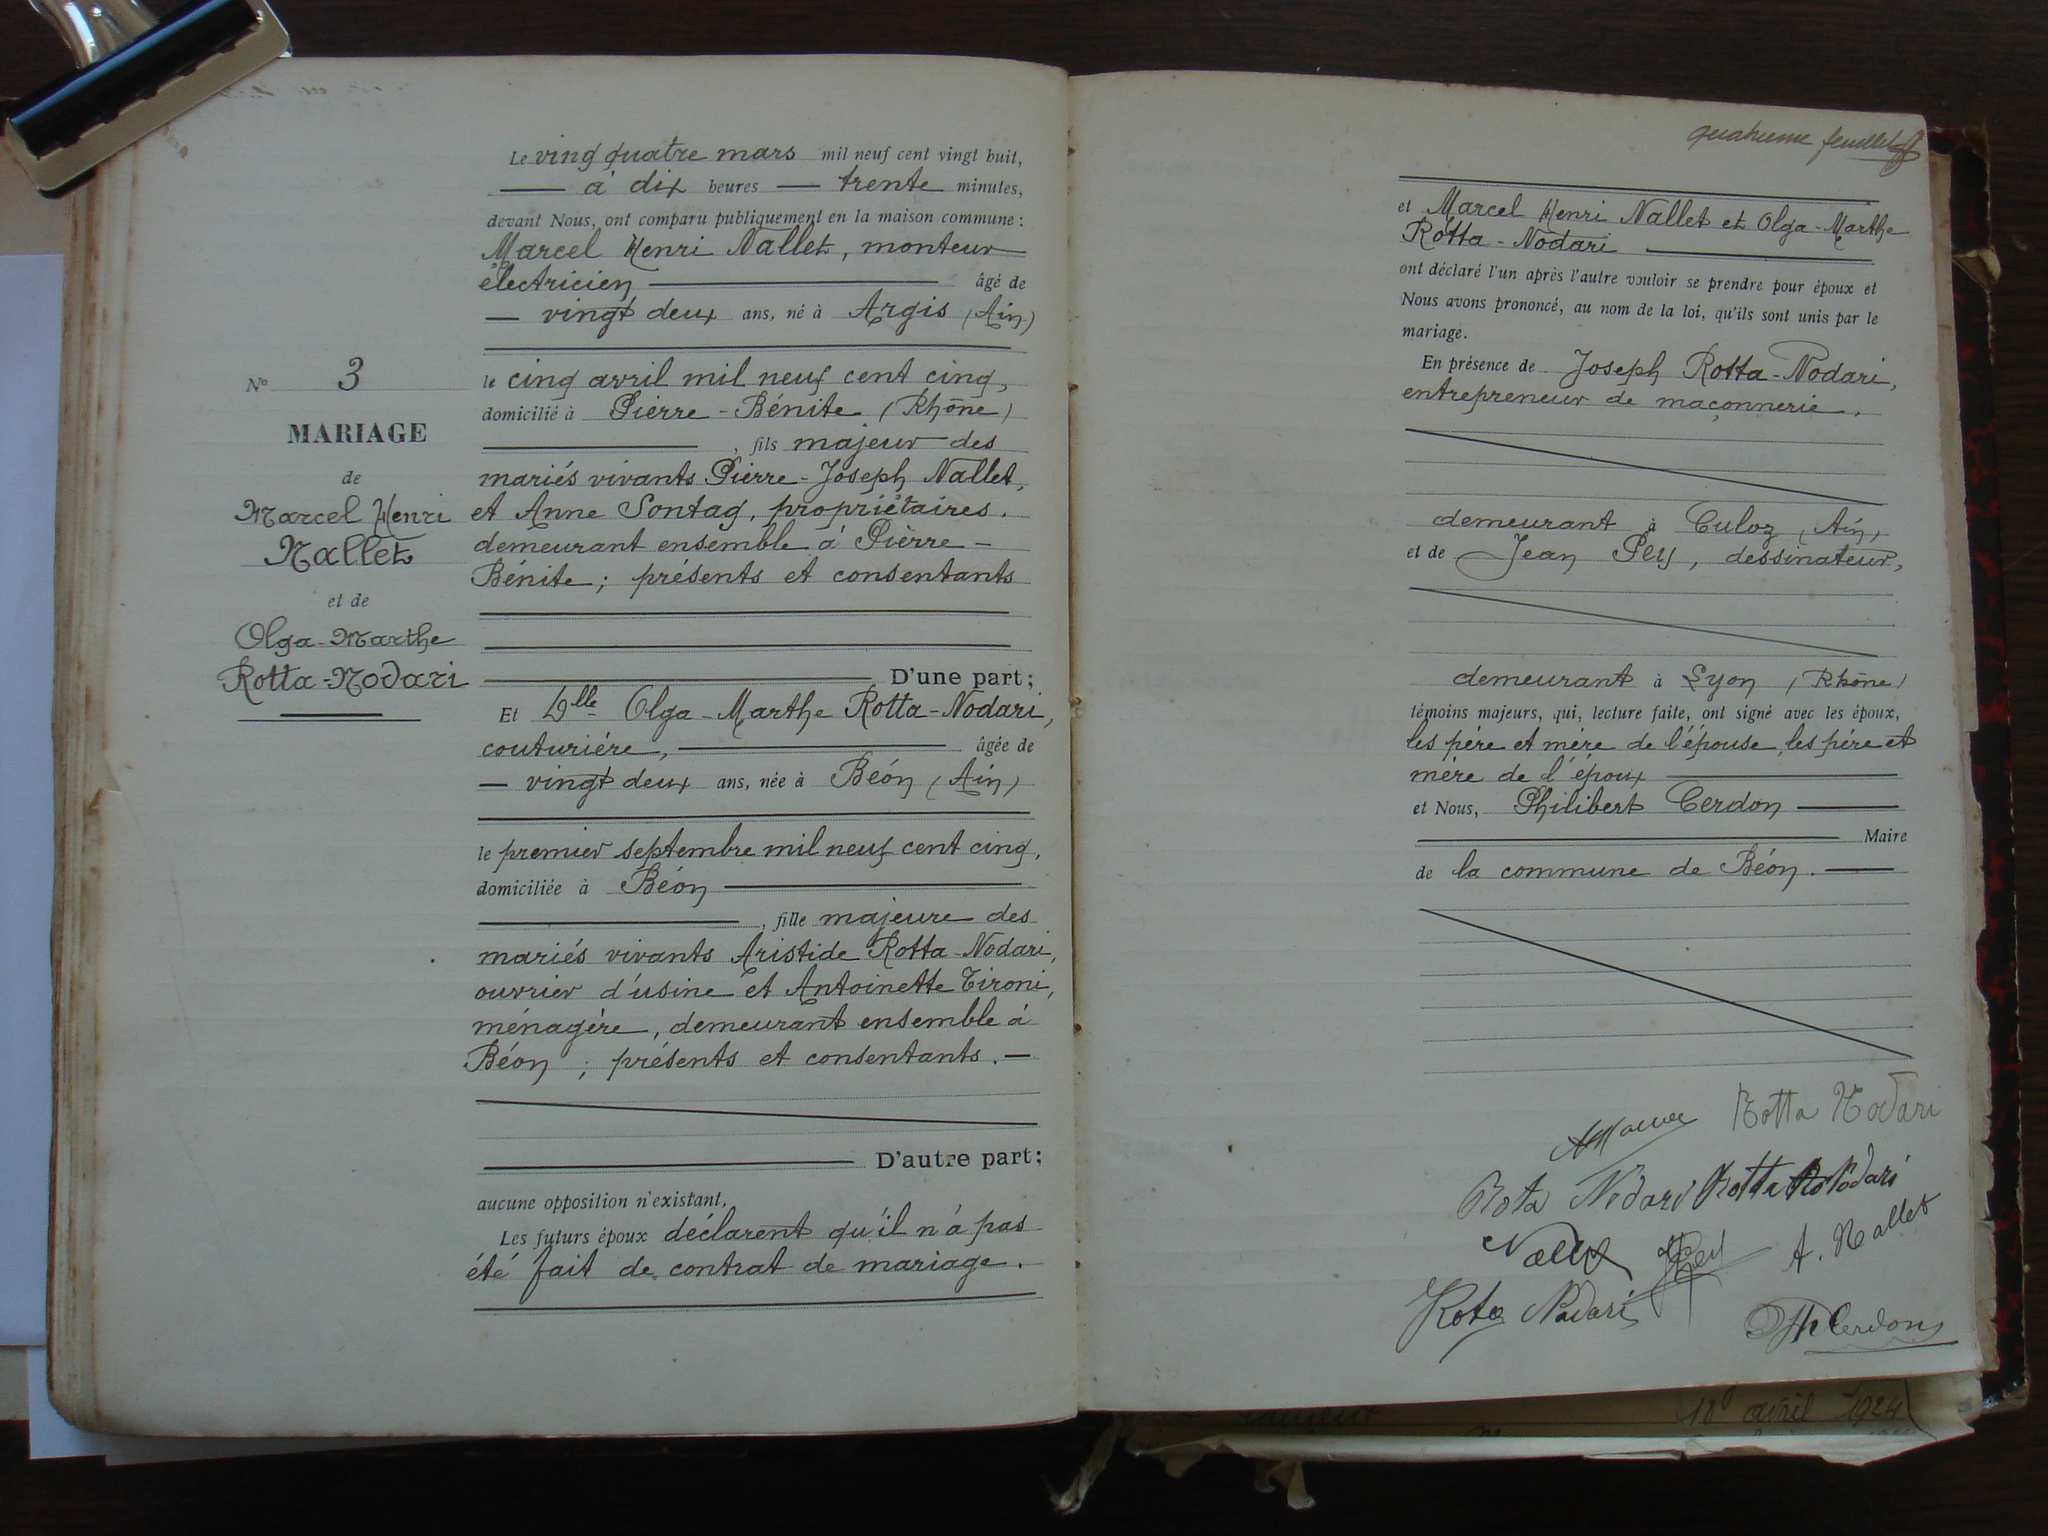 Le ving quatre mars mil neuf cent vingt huit,
à dix heures trente minutes,
devant Nous, ont comparu publiquement en la maison commune :
Marcel Henri Nallet, monteur
électricien âgé de
vingt deux ans, né à Argis (Ain)
N° 3
MARIAGE
de
Marcel Henri
Nallet
et de
Olga-Marthe
Rotta-Nodari
le cinq avril mil neuf cent cinq,
domicilié à Pierre-Bénite (Rhône)
, fils majeur des
mariés vivants Pierre-Joseph Nallet,
et Anne Sontag, propriétaires,
demeurant ensemble à Pierre-
Bénite; présents et consentants
D'une part;
Et Dlle Olga-Marthe Rotta-Nodari,
couturière, âgée de
vingt deux ans, née à Béon (Ain)
le premier septembre mil neuf cent cinq,
domiciliée à Béon
, fille majeure des
mariés vivants Aristide Rotta-Nodari,
ouvrier d'usine et Antoinette Tironi,
ménagère, demeurant ensemble à
Béon ; présents et consentants.
D'autre part;
aucune opposition n'existant,
Les futurs époux déclarent qu'il n'a pas
été fait de contrat de mariage.
feuillet
et Marcel Henri Nallet et Olga-Marthe
Rotta-Nodari
ont déclaré l'un après l'autre vouloir se prendre pour époux et
Nous avons prononcé, au nom de la loi, qu'ils sont unis par le
mariage.
En présence de Joseph Rotta-Nodari,
entrepreneur de maçonnerie,
demeurant à Culoz (Ain)
et de Jean Pey, dessinateur,
demeurant à Lyon (Rhône)
témoins majeurs, qui, lecture faite, ont signé avec les époux,
les père et mère de l'épouse, les père et
mère de l'époux
et Nous, Philibert Cerdon
Maire
de la commune de Béon.
Rotta Nodari
Rota Nodari Rotta Nodari
A. Nallet
Rota Nodari
Ph Cerdon
18 avril 1924